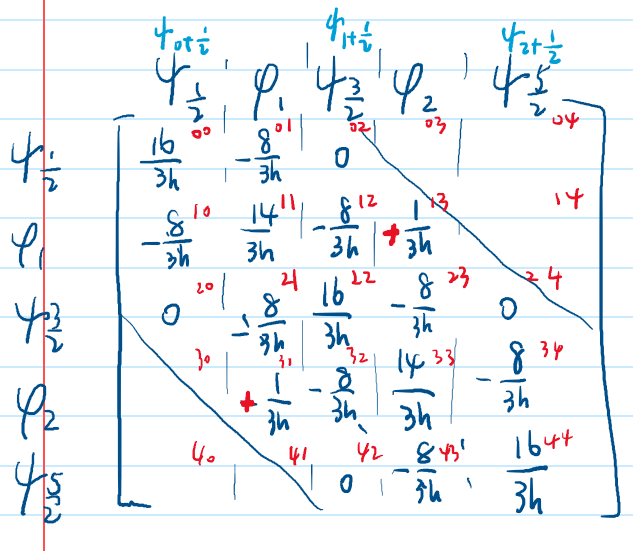 ψ₀₊½ ψ₁₊½ ψ₂₊½
ψ_{1/2} φ₁ ψ_{3/2} φ₂ ψ_{5/2}
ψ_{1/2} 16/3h 00 -8/3h 01 0 02 03 04
φ₁ -8/3h 10 14/3h 11 -8/3h 12 +1/3h 13 14
ψ_{3/2} 0 20 -8/3h 21 16/3h 22 -8/3h 23 0 24
φ₂ 30 +1/3h 31 -8/3h 32 14/3h 33 -8/3h 34
ψ_{5/2} 40 41 0 42 -8/3h 43 16/3h 44